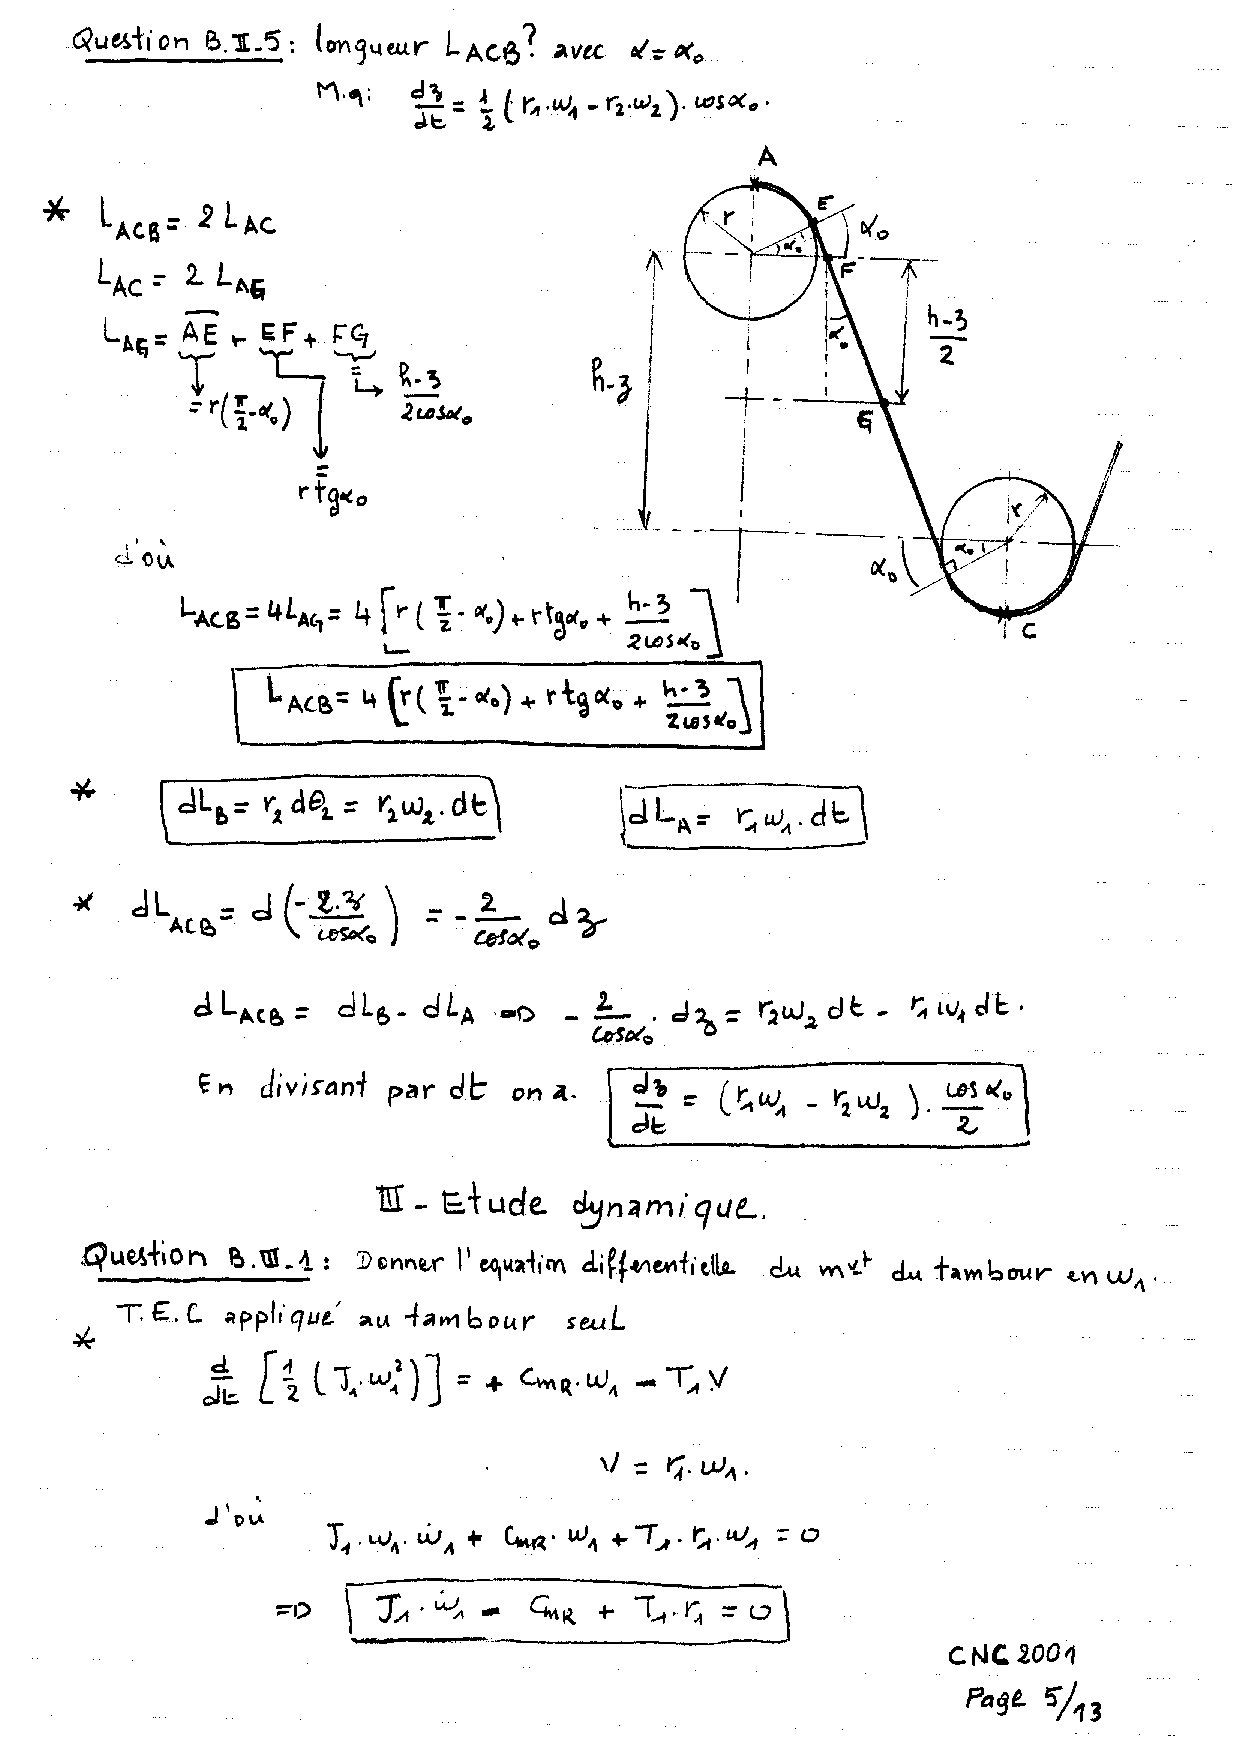 Question B.II-5 : longueur L_ACB? avec α = α₀
M.q: dz/dt = 1/2 (r₁.ω₁ - r₂.ω₂). cosα₀.
A
E
r
α₀
α₀
F
α₀
h-z/2
h-z
G
r
α₀
α₀
C
* L_ACB = 2 L_AC
L_AC = 2 L_AG
L_AG = AE + EF + FG
= r(π/2 - α₀)
= h-z/2cosα₀
= r tgα₀
d'où
L_ACB = 4L_AG = 4 [r(π/2 - α₀) + r tgα₀ + h-z/2cosα₀]
L_ACB = 4 [r(π/2 - α₀) + r tgα₀ + h-z/2cosα₀]
* dL_B = r₂ dθ₂ = r₂ω₂.dt dL_A = r₁ω₁.dt
* dL_ACB = d(-2.z/cosα₀) = -2/cosα₀ dz
dL_ACB = dL_B - dL_A => -2/cosα₀ . dz = r₂ω₂ dt - r₁ω₁ dt.
En divisant par dt on a. dz/dt = (r₁ω₁ - r₂ω₂). cosα₀/2
III - Etude dynamique.
Question B.III-1 : Donner l'equation differentielle du mvt du tambour en ω₁.
* T.E.C appliqué au tambour seul
d/dt [1/2 (J₁.ω₁²)] = + CmR.ω₁ - T₁.V
V = r₁.ω₁.
d'où J₁.ω₁.ω̇₁ + CmR.ω₁ + T₁.r₁.ω₁ = 0
=> J₁.ω̇₁ - CmR + T₁.r₁ = 0
CNC 2001
Page 5/13